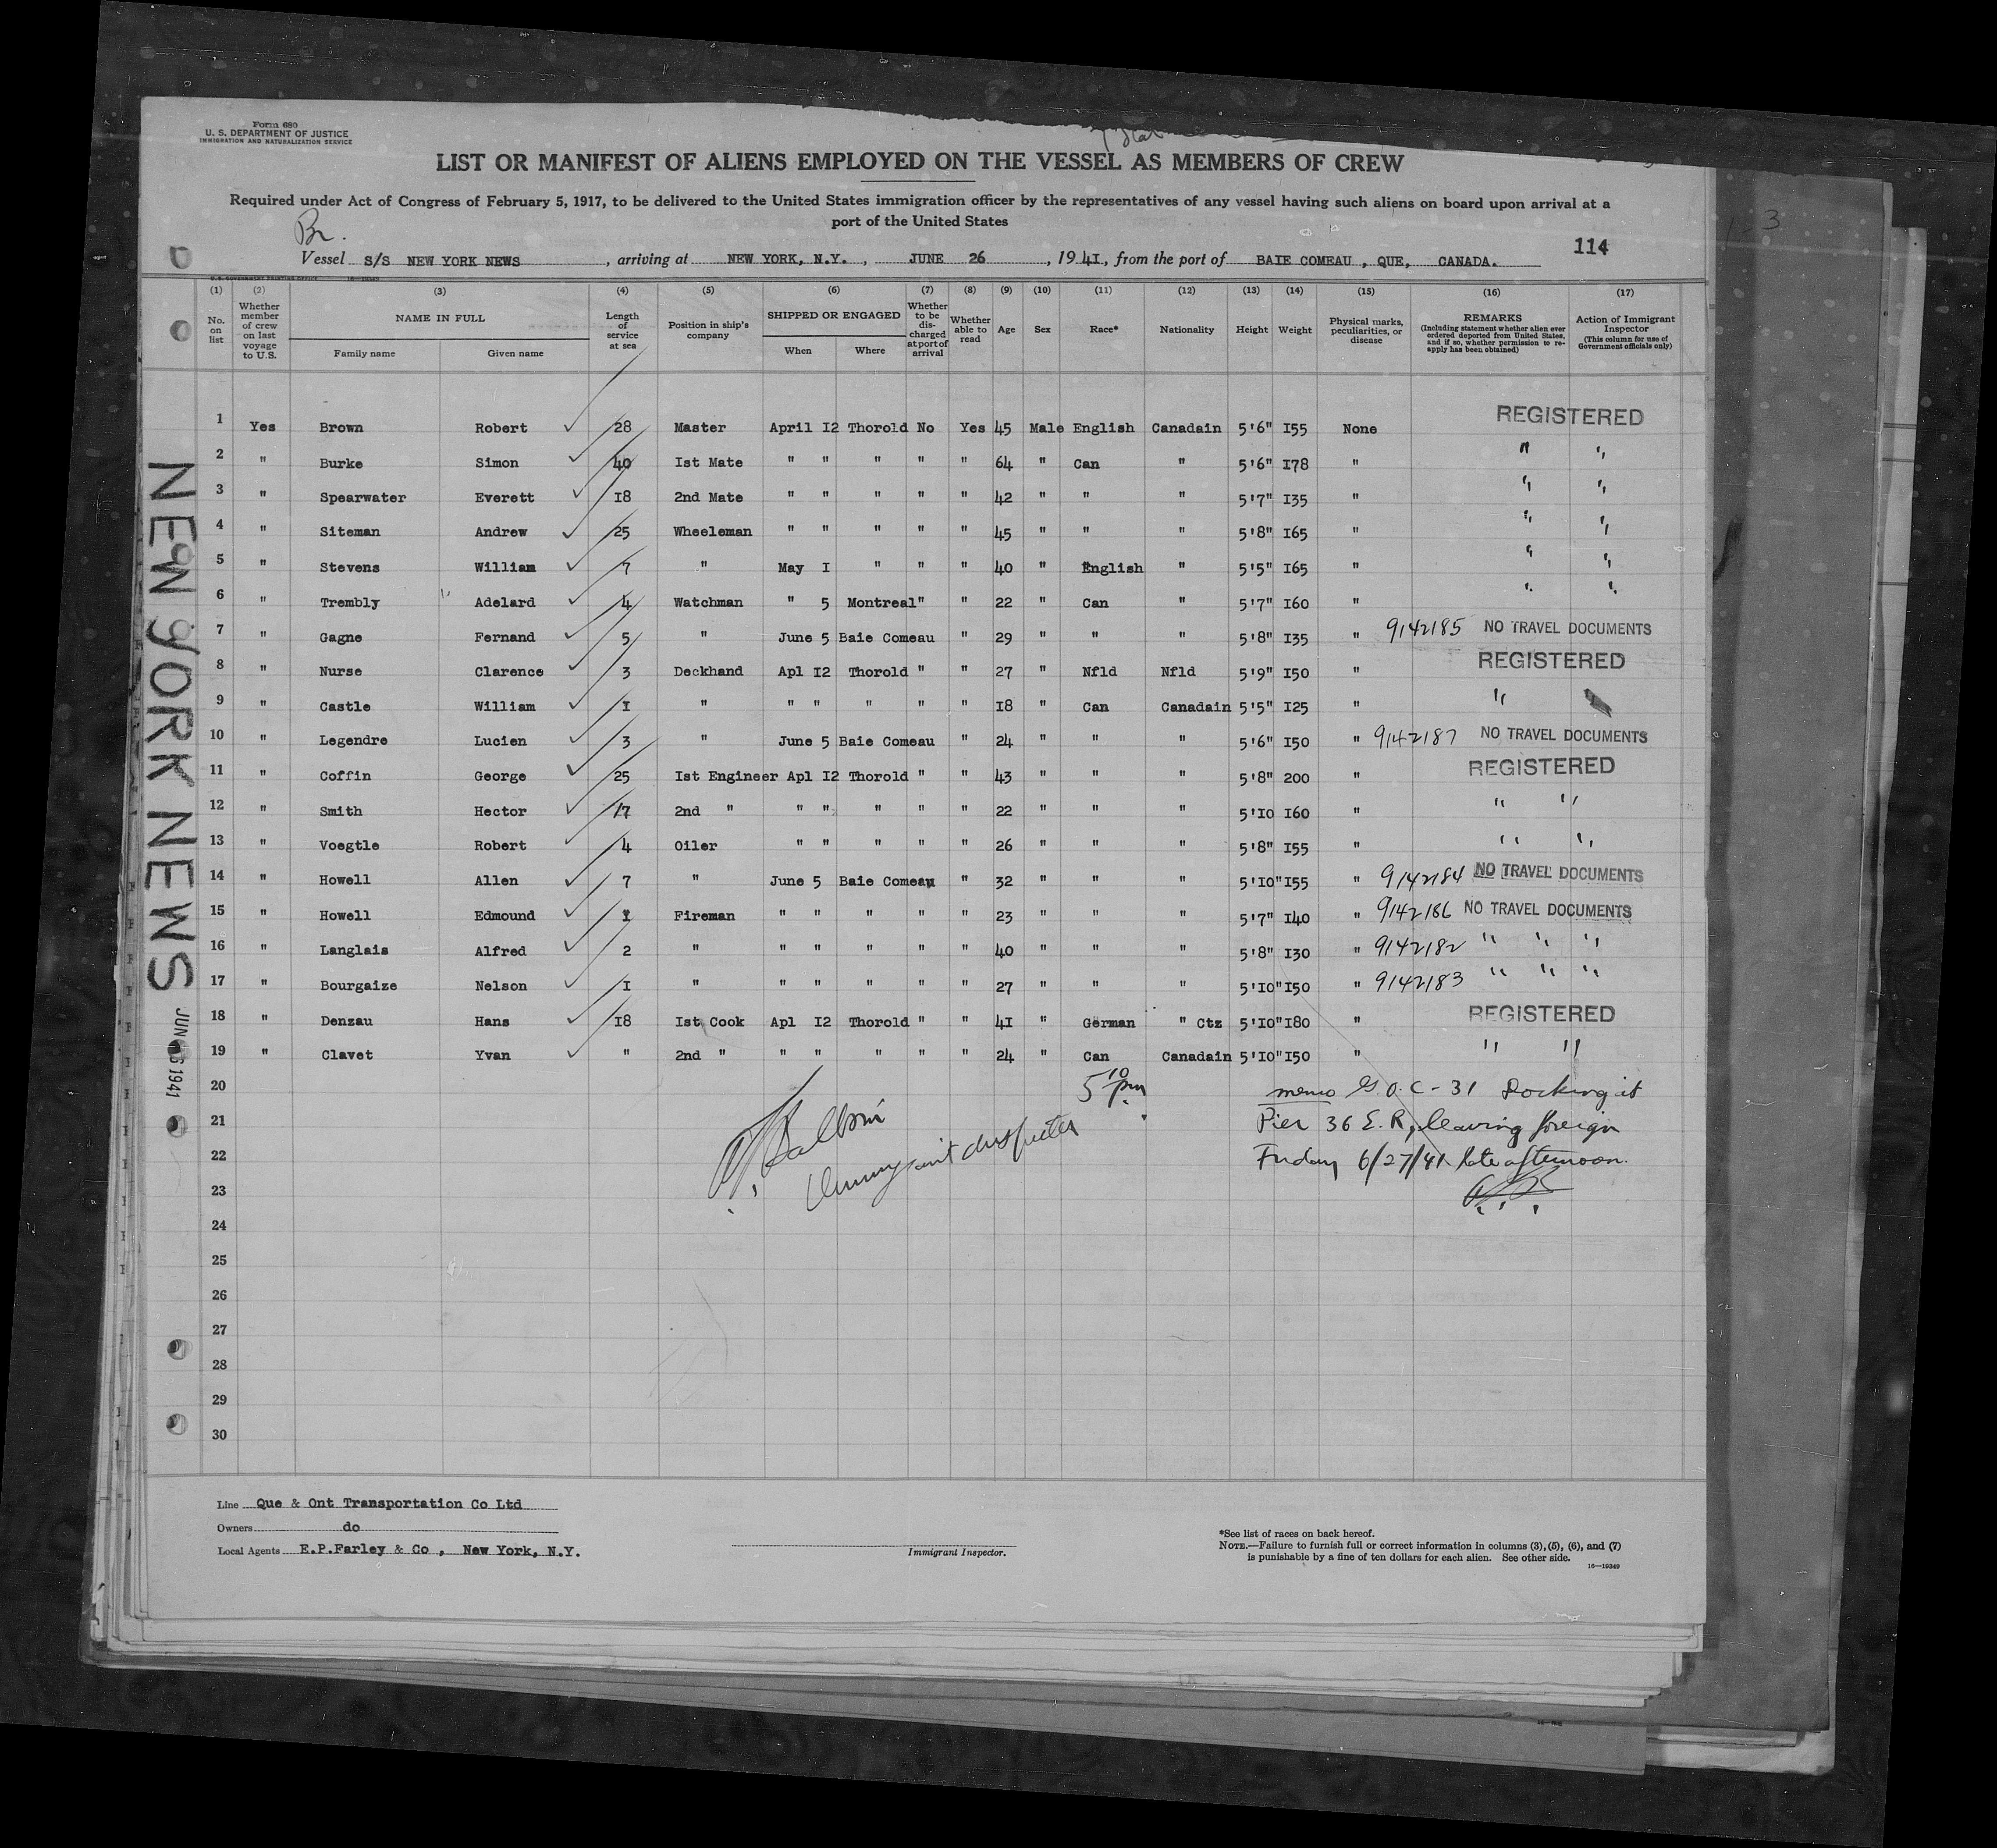 Form 680
U. S. DEPARTMENT OF JUSTICE
IMMIGRATION AND NATURALIZATION SERVICE
LIST OR MANIFEST OF ALIENS EMPLOYED ON THE VESSEL AS MEMBERS OF CREW
Required under Act of Congress of February 5, 1917, to be delivered to the United States immigration officer by the representatives of any vessel having such aliens on board upon arrival at a
port of the United States
Br.
3
114
Vessel S/S NEW YORK NEWS , arriving at NEW YORK, N.Y. , JUNE 26 , 1941, from the port of BAIE COMEAU , QUE, CANADA.
(1) (2) (3) (4) (5) (6) (7) (8) (9) (10) (11) (12) (13) (14) (15) (16) (17)
No. on list
Whether member of crew on last voyage to U.S.
NAME IN FULL
Family name Given name
Length of service at sea
Position in ship's company
SHIPPED OR ENGAGED
When Where
Whether to be discharged at port of arrival
Whether able to read
Age Sex Race* Nationality Height Weight
Physical marks, peculiarities, or disease
REMARKS
(Including statement whether alien ever ordered deported from United States, and if so, whether permission to re-apply has been obtained)
Action of Immigrant Inspector
(This column for use of Government officials only)
1 Yes Brown Robert 28 Master April I2 Thorold No Yes 45 Male English Canadain 5'6" I55 None REGISTERED
2 " Burke Simon 40 Ist Mate " " " " " 64 " Can " 5'6" I78 " " "
3 " Spearwater Everett I8 2nd Mate " " " " " 42 " " " 5'7" I35 " " "
4 " Siteman Andrew 25 Wheeleman " " " " " 45 " " " 5'8" I65 " " "
5 " Stevens William 7 " May I " " " 40 " English " 5'5" I65 " " "
6 " Trembly Adelard 4 Watchman " 5 Montreal " " 22 " Can " 5'7" I60 " " "
7 " Gagne Fernand 5 " June 5 Baie Comeau " 29 " " " 5'8" I35 " 9142185 NO TRAVEL DOCUMENTS
8 " Nurse Clarence 3 Deckhand Apl I2 Thorold " " 27 " Nfld Nfld 5'9" I50 " REGISTERED
9 " Castle William I " " " " " " I8 " Can Canadain 5'5" I25 " "
10 " Legendre Lucien 3 " June 5 Baie Comeau " 24 " " " 5'6" I50 " 9142187 NO TRAVEL DOCUMENTS
11 " Coffin George 25 Ist Engineer Apl I2 Thorold " " 43 " " " 5'8" 200 " REGISTERED
12 " Smith Hector 17 2nd " " " " " " 22 " " " 5'IO I60 " " "
13 " Voegtle Robert 4 Oiler " " " " " 26 " " " 5'8" I55 " " "
14 " Howell Allen 7 " June 5 Baie Comeau " 32 " " " 5'IO" I55 " 9142184 NO TRAVEL DOCUMENTS
15 " Howell Edmound I Fireman " " " " " 23 " " " 5'7" I40 " 9142186 NO TRAVEL DOCUMENTS
16 " Langlais Alfred 2 " " " " " " 40 " " " 5'8" I30 " 9142182 " " "
17 " Bourgaize Nelson I " " " " " " 27 " " " 5'IO" I50 " 9142183 " " "
18 " Denzau Hans I8 Ist Cook Apl I2 Thorold " " 4I " German " Ctz 5'IO" I80 " REGISTERED
19 " Clavet Yvan " 2nd " " " " " " 24 " Can Canadain 5'IO" I50 " " "
20
21
22
23
24
25
26
27
28
29
30
5 10 pm
Immigrant Inspector
memo G.O. C-31 Docking at
Pier 36 E. R, leaving foreign
Friday 6/27/41 late afternoon.
NEW YORK NEWS
JUN 26 1941
Line Que & Ont Transportation Co Ltd
Owners do
Local Agents E.P.Farley & Co , New York, N.Y.
Immigrant Inspector.
*See list of races on back hereof.
NOTE.—Failure to furnish full or correct information in columns (3), (5), (6), and (7)
is punishable by a fine of ten dollars for each alien. See other side.
16—19349